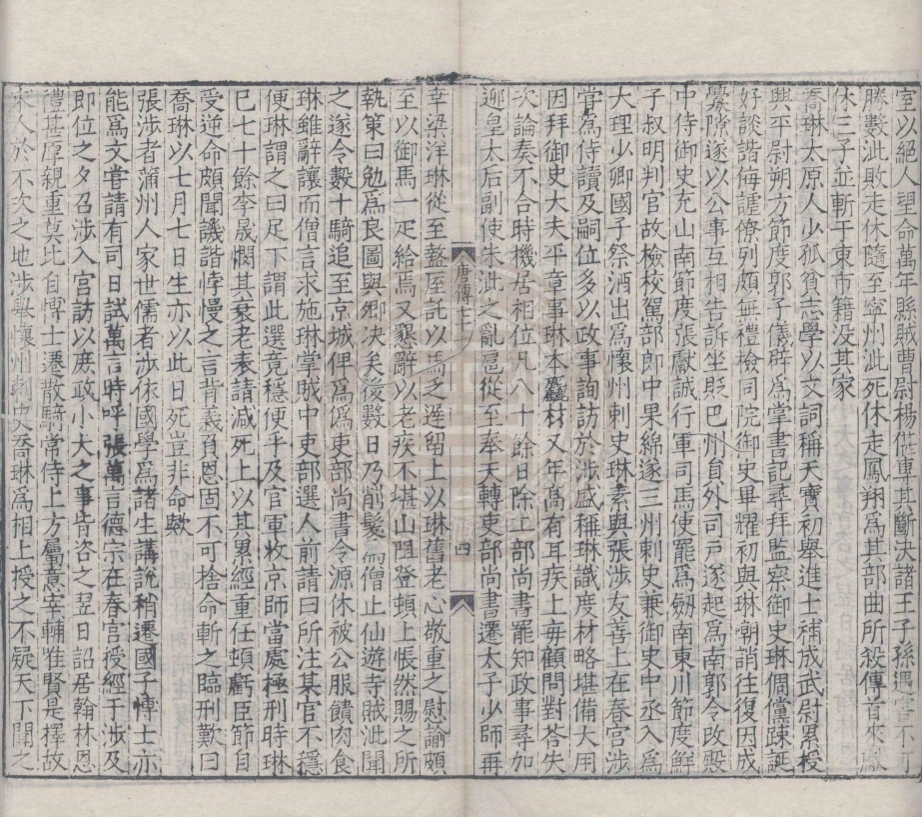 室以絕人望命萬年縣賊曹尉楊偡專其斷決諸王子孫遇害不可
勝數泚敗走休隨至寧州泚死休走鳳翔爲其部曲所殺傳首來獻
休三子並斬于東市籍没其家
喬琳太原人少孤貧志學以文詞稱天寶初舉進士補成武尉累授
興平尉朔方節度郭子儀辟爲掌書記尋拜監察御史琳倜儻踈誕
好談諧侮謔僚列頗無禮檢同院御史畢耀初與琳嘲誚往復因成
釁隙遂以公事互相告訴坐貶巴州負外司戸遂起爲南郭令改殿
中侍御史充山南節度張獻誠行軍司馬使罷爲劔南東川節度鮮
于叔明判官故檢校駕部郎中果綿遂三州刺史兼御史中丞入爲
大理少卿國子祭酒出爲懷州刺史琳素與張涉友善上在春宫涉
嘗爲侍讀及嗣位多以政事詢訪於涉盛稱琳識度材略堪備大用
因拜御史大夫平章事琳本麤材又年髙有耳疾上毎顧問對荅失
次論奏不合時機居相位凡八十餘日除工部尚書罷知政事尋加
迎皇太后副使朱泚之亂扈從至奉天轉吏部尚書遷太子少師再
唐傳七十七
四
幸梁洋琳從至盩厔託以馬乏遲留上以琳舊老心敬重之慰諭頗
至以御馬一疋給焉又懇辭以老疾不堪山阻登頓上悵然賜之所
執策曰勉爲良圖與卿決矣後數日乃削髮爲僧止仙遊寺賊泚聞
之遂令數十騎追至京城俾爲僞吏部尚書令源休被公服饋肉食
琳雖辭讓而僧言求施琳掌賊中吏部選人前請曰所注某官不穩
便琳謂之曰足下謂此選竟穩便乎及官軍收京師當處極刑時琳
已七十餘李晟憫其衰老表請減死上以其累經重任頓虧臣節自
受逆命頗聞譏諧悖慢之言背義負恩固不可捨命斬之臨刑歎曰
喬琳以七月七日生亦以此日死豈非命歟
張涉者蒲州人家世儒者涉依國學爲諸生講說稍遷國子愽士亦
能爲文甞請有司日試萬言時呼張萬言德宗在春宫授經于涉及
即位之夕召涉入宫訪以庶政小大之事皆咨之翌日詔居翰林恩
禮甚厚親重莫比自愽士遷散騎常侍上方屬意宰輔唯賢是擇故
求人於不次之地涉舉懷州刺史喬琳爲相上授之不疑天下聞之